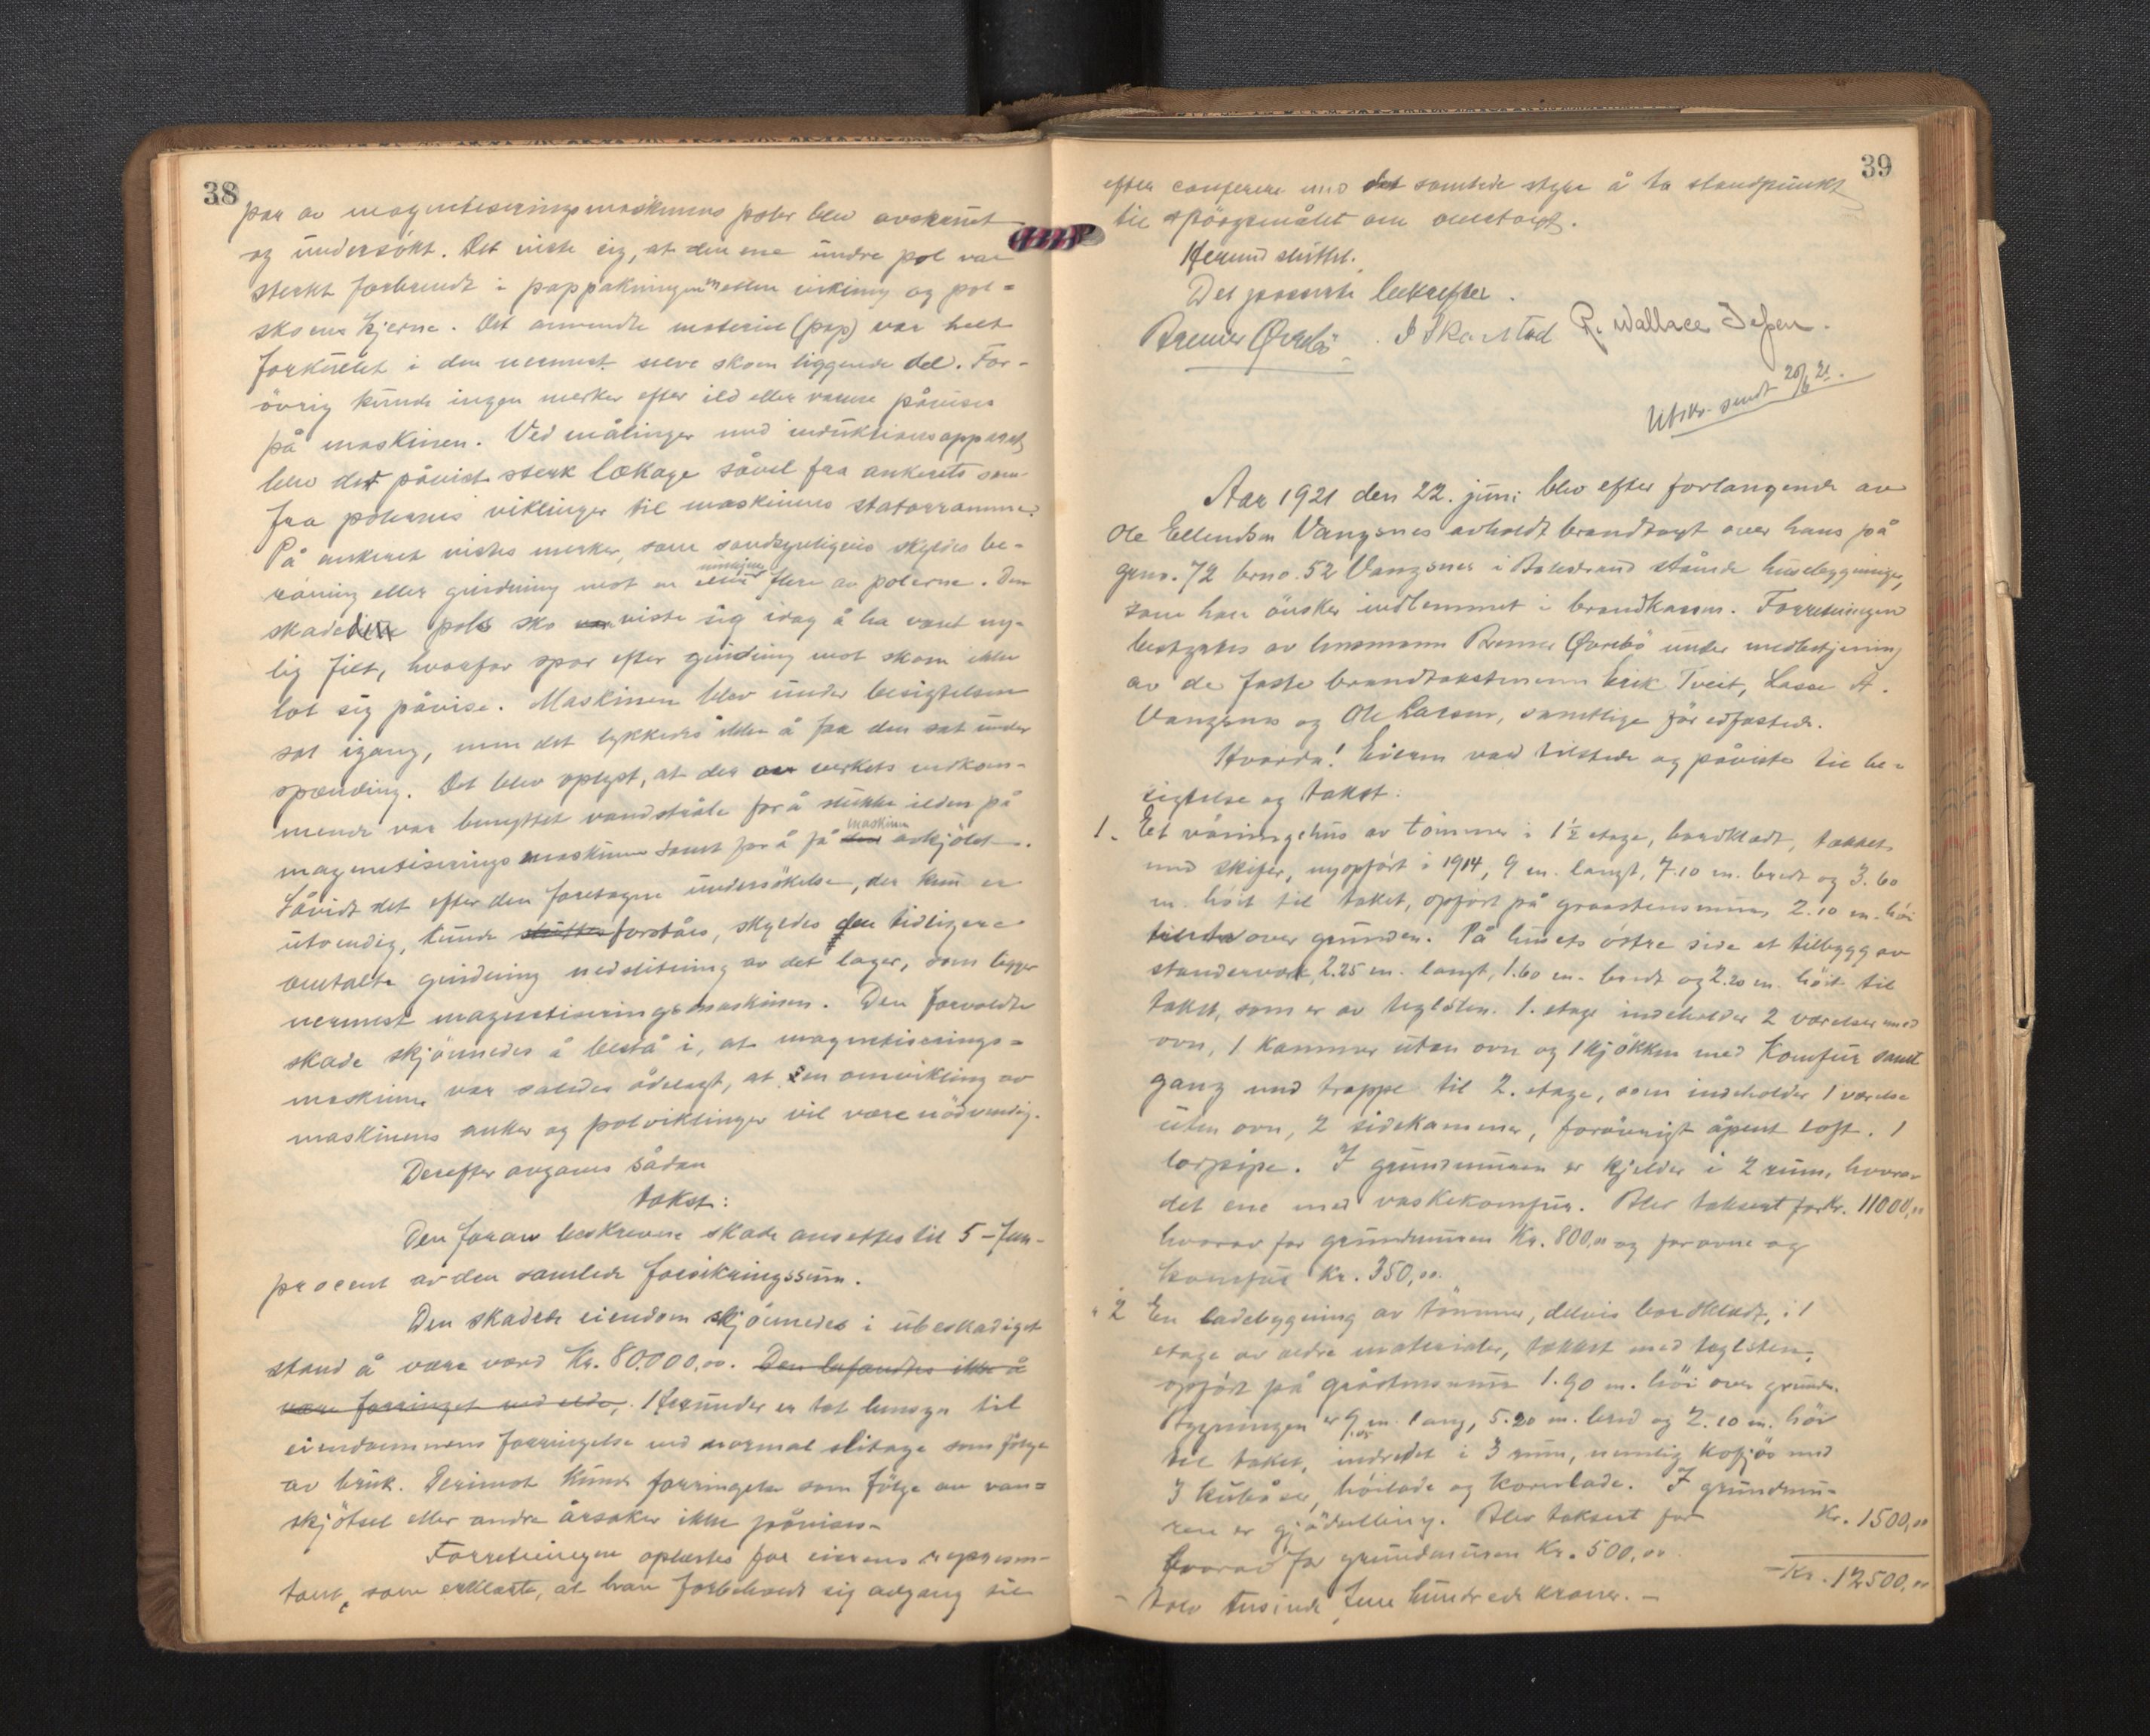 38
par av magnetiseringsmaskinens poler blev avskruet
og undersökt. Det viste sig, at den ene undre pol var
sterkt forbrendt i pappakningen mellem vikling og pol-
skoens kjerne. Det anvendte materiel (pap) var helt
forkullet i den nermest selve skoen liggende del. For-
övrig kunde ingen merker efter ild eller varme påvises
på maskinen. Ved målinger med induktionsapparat
blev det påvist sterk lækage såvel fra ankerets som
fra polernes viklinger til maskinens statorramme.
På ankeret vistes merker, som sandsynligvis skyldes be-
röring eller gnidning mot en eller flere av polerne. Den
skadede pols sko viste sig idag å ha vært ny-
lig filt, hvorfor spor efter gnidning mot skoen ikke
lot sig påvise. Maskinen blev under besigtelsen
sat igang, men det lykkedes ikke å faa den sat under
spænding. Det blev oplyst, at der av verkets vedkom-
mende var benyttet vandstråle for å slukke ilden på
magnetiseringsmaskinen samt for å få den maskinen avkjölet.
Såvidt det efter den foretagne undersökelse, der kun er
utvendig, kunde forstås, skyldes den tidligere
omtalte gnidning nedslitning av det lager, som ligger
nermest magnetiseringsmaskinen. Den forvoldte
skade skjönnedes å bestå i, at magnetiserings-
maskinen var således ödelagt, at en omvikling av
maskinens anker og polviklinger vil være nödvendig.
Derefter avgaves sådan
takst:
Den foran beskrevne skade ansettes til 5 - fem -
procent av den samlede forsikringssum.
Den skadede eiendom skjönnedes i ubeskadiget
stand å være værd Kr. 80.000,00. Den befandtes ikke å
være forringet ved elde, Herunder er tat hensyn til
eiendommens forringelse ved normal slitage som fölge
av bruk. Derimot kunde forringelse som fölge av van-
skjötsel eller andre årsaker ikke påvises.
Forretningen oplæstes for eierens represen-
tant, som erklærte, at han forbeholdt sig adgang til
39
efter conferere med det samlede styre å ta standpunkt
til spörgsmålet om omtakst.
Hermed sluttet.
Det passerte bekrefter.
Brenner Øvrebö J Skarstad R. Wallace Jepsen.
Utskr. sendt 20/6 21.
Aar 1921 den 22. juni blev efter forlangende av
Ole Ellendsen Vangsnes avholdt brandtakst over hans på
gno. 72 brno. 52 Vangsnes i Balestrand stående husebygninger,
som han önsker indlemmet i brandkassen. Forretningen
bestyrtes av lensmann Brenner Øvrebö under medbetjening
av de faste brandtakstmenn Erik Tveit, Lasse A.
Vangsnes og Ole Larsen, samtlige för edfæstede.
Hvorda! Eieren var tilstede og påviste til be-
sigtelse og takst:
1. Et våningshus av tömmer i 1½ etage, bordklædt, tækket
med skifer, nyopfört i 1914, 9 m. langt, 7.10 m. bredt og 3.60
m. höit til taket, opfört på graastensmur, 2.10 m. höi
over grunden. På husets östre side et tilbygg av
standerverk, 2.25 m. langt, 1.60 m. bredt og 2.20 m. höit til
taket, som er av teglsten. 1. etage indeholder 2 værelser med
ovn, 1 kammer uten ovn og 1 kjökken med komfur samt
gang med trappe til 2. etage, som indeholder 1 værelse
uten ovn, 2 sidekammer, forövrigt åpent loft. 1
lorpipe. I grundmuren er kjelder i 2 rum, hvorav
det ene med vaskekomfur. Blev taksert for Kr. 11000,00
hvorav for grundmuren Kr. 800,00 og for ovne og
komfur Kr. 350,00.
2 En ladebygning av tömmer, delvis bordklædt, i 1
etage av eldre materialer, tækket med teglsten,
opfört på gråstensmur 1.90 m. höi over grunden.
Bygningen er 9 m. lang, 5.20 m. bred og 2.10 m. höi
til taket, indredet i 3 rum, nemlig kofjös med
3 kubåser, höilade og kornlade. I grundmu-
ren er gjödselbing. Blev taksert for Kr. 1500,00
hvorav for grundmuren Kr. 500,00.
Kr. 12500,00
- tolv tusinde fem hundrede kroner. -